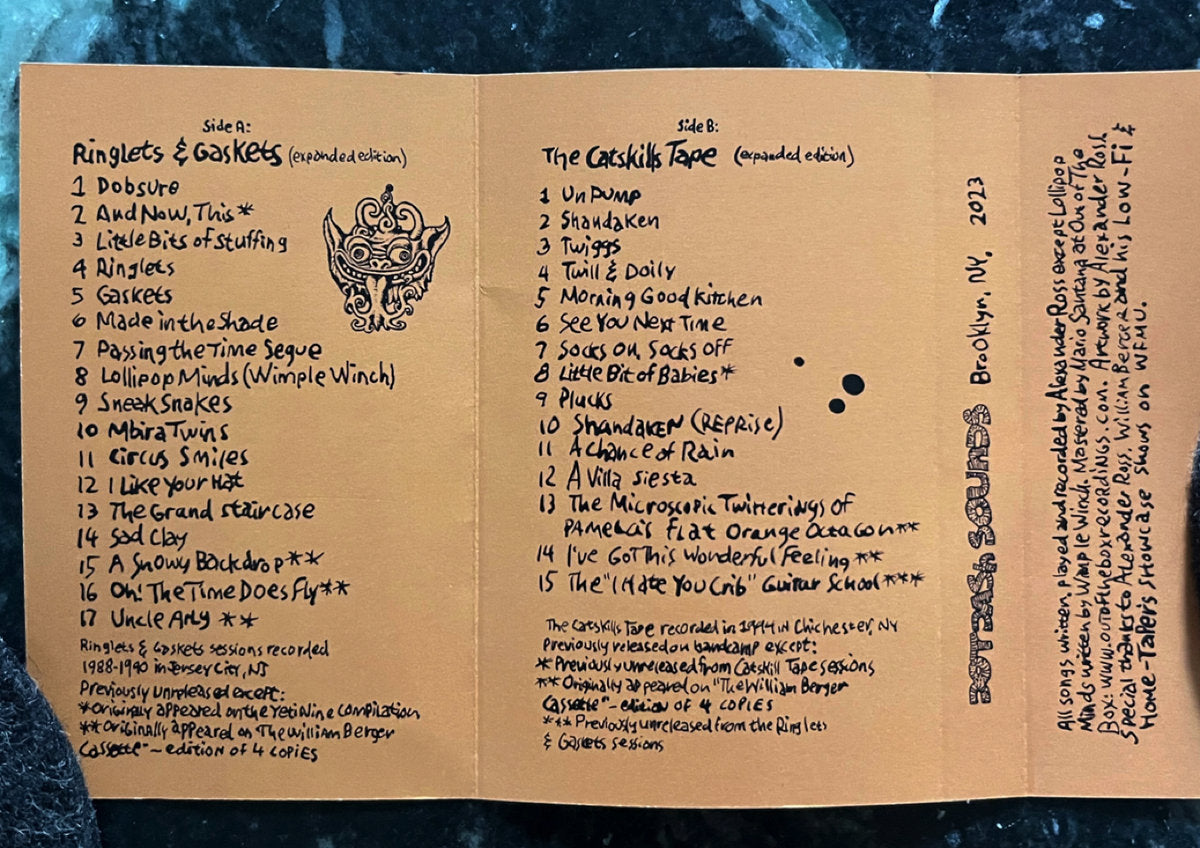 Side A:
Ringlets & Gaskets (expanded edition)
1 Dobsure
2 And Now, This*
3 Little Bits of Stuffing
4 Ringlets
5 Gaskets
6 Made in the Shade
7 Passing the Time Segue
8 Lollipop Minds (Wimple Winch)
9 Sneak Snakes
10 Mbira Twins
11 Circus Smiles
12 I Like Your Hat
13 The Grand Staircase
14 Sad Clay
15 A Snowy Backdrop**
16 Oh! The Time Does Fly**
17 Uncle Arly **
Ringlets & Gaskets sessions recorded
1988-1990 in Jersey City, NJ
Previously unreleased except:
*Originally appeared on the Yeti Nine compilation
**Originally appeared on The William Berger
Cassette" – edition of 4 copies
Side B:
The Catskills Tape (expanded edition)
1 Un Pump
2 Shandaken
3 Twiggs
4 Twill & Doily
5 Morning Good Kitchen
6 See You Next Time
7 Socks On, Socks Off
8 Little Bit of Babies*
9 Plucks
10 Shandaken (REPRise)
11 A Chance of Rain
12 A Villa Siesta
13 The Microscopic Twitterings of
Pamela's Flat Orange Octagon**
14 I've Got This Wonderful Feeling **
15 The "I Hate You Crib" Guitar School***
The Catskills Tape recorded in 1994 in Chichester, NY
Previously released on bandcamp except:
* Previously unreleased from Catskill Tape sessions
** Originally appeared on "The William Berger
Cassette" – edition of 4 copies
*** Previously unreleased from the Ringlets
& Gaskets sessions
HOTRASH SOUNDS Brooklyn, NY, 2023
All songs written, played and recorded by Alexander Ross except Lollipop
Minds written by Wimple Winch. Mastered by Mario Santana at Out of The
Box: www.outoftheboxrecordings.com. Artwork by Alexander Ross
Special thanks to Alexander Ross, William Berger and his Low-Fi &
Home-Taper's Showcase shows on WFMU.